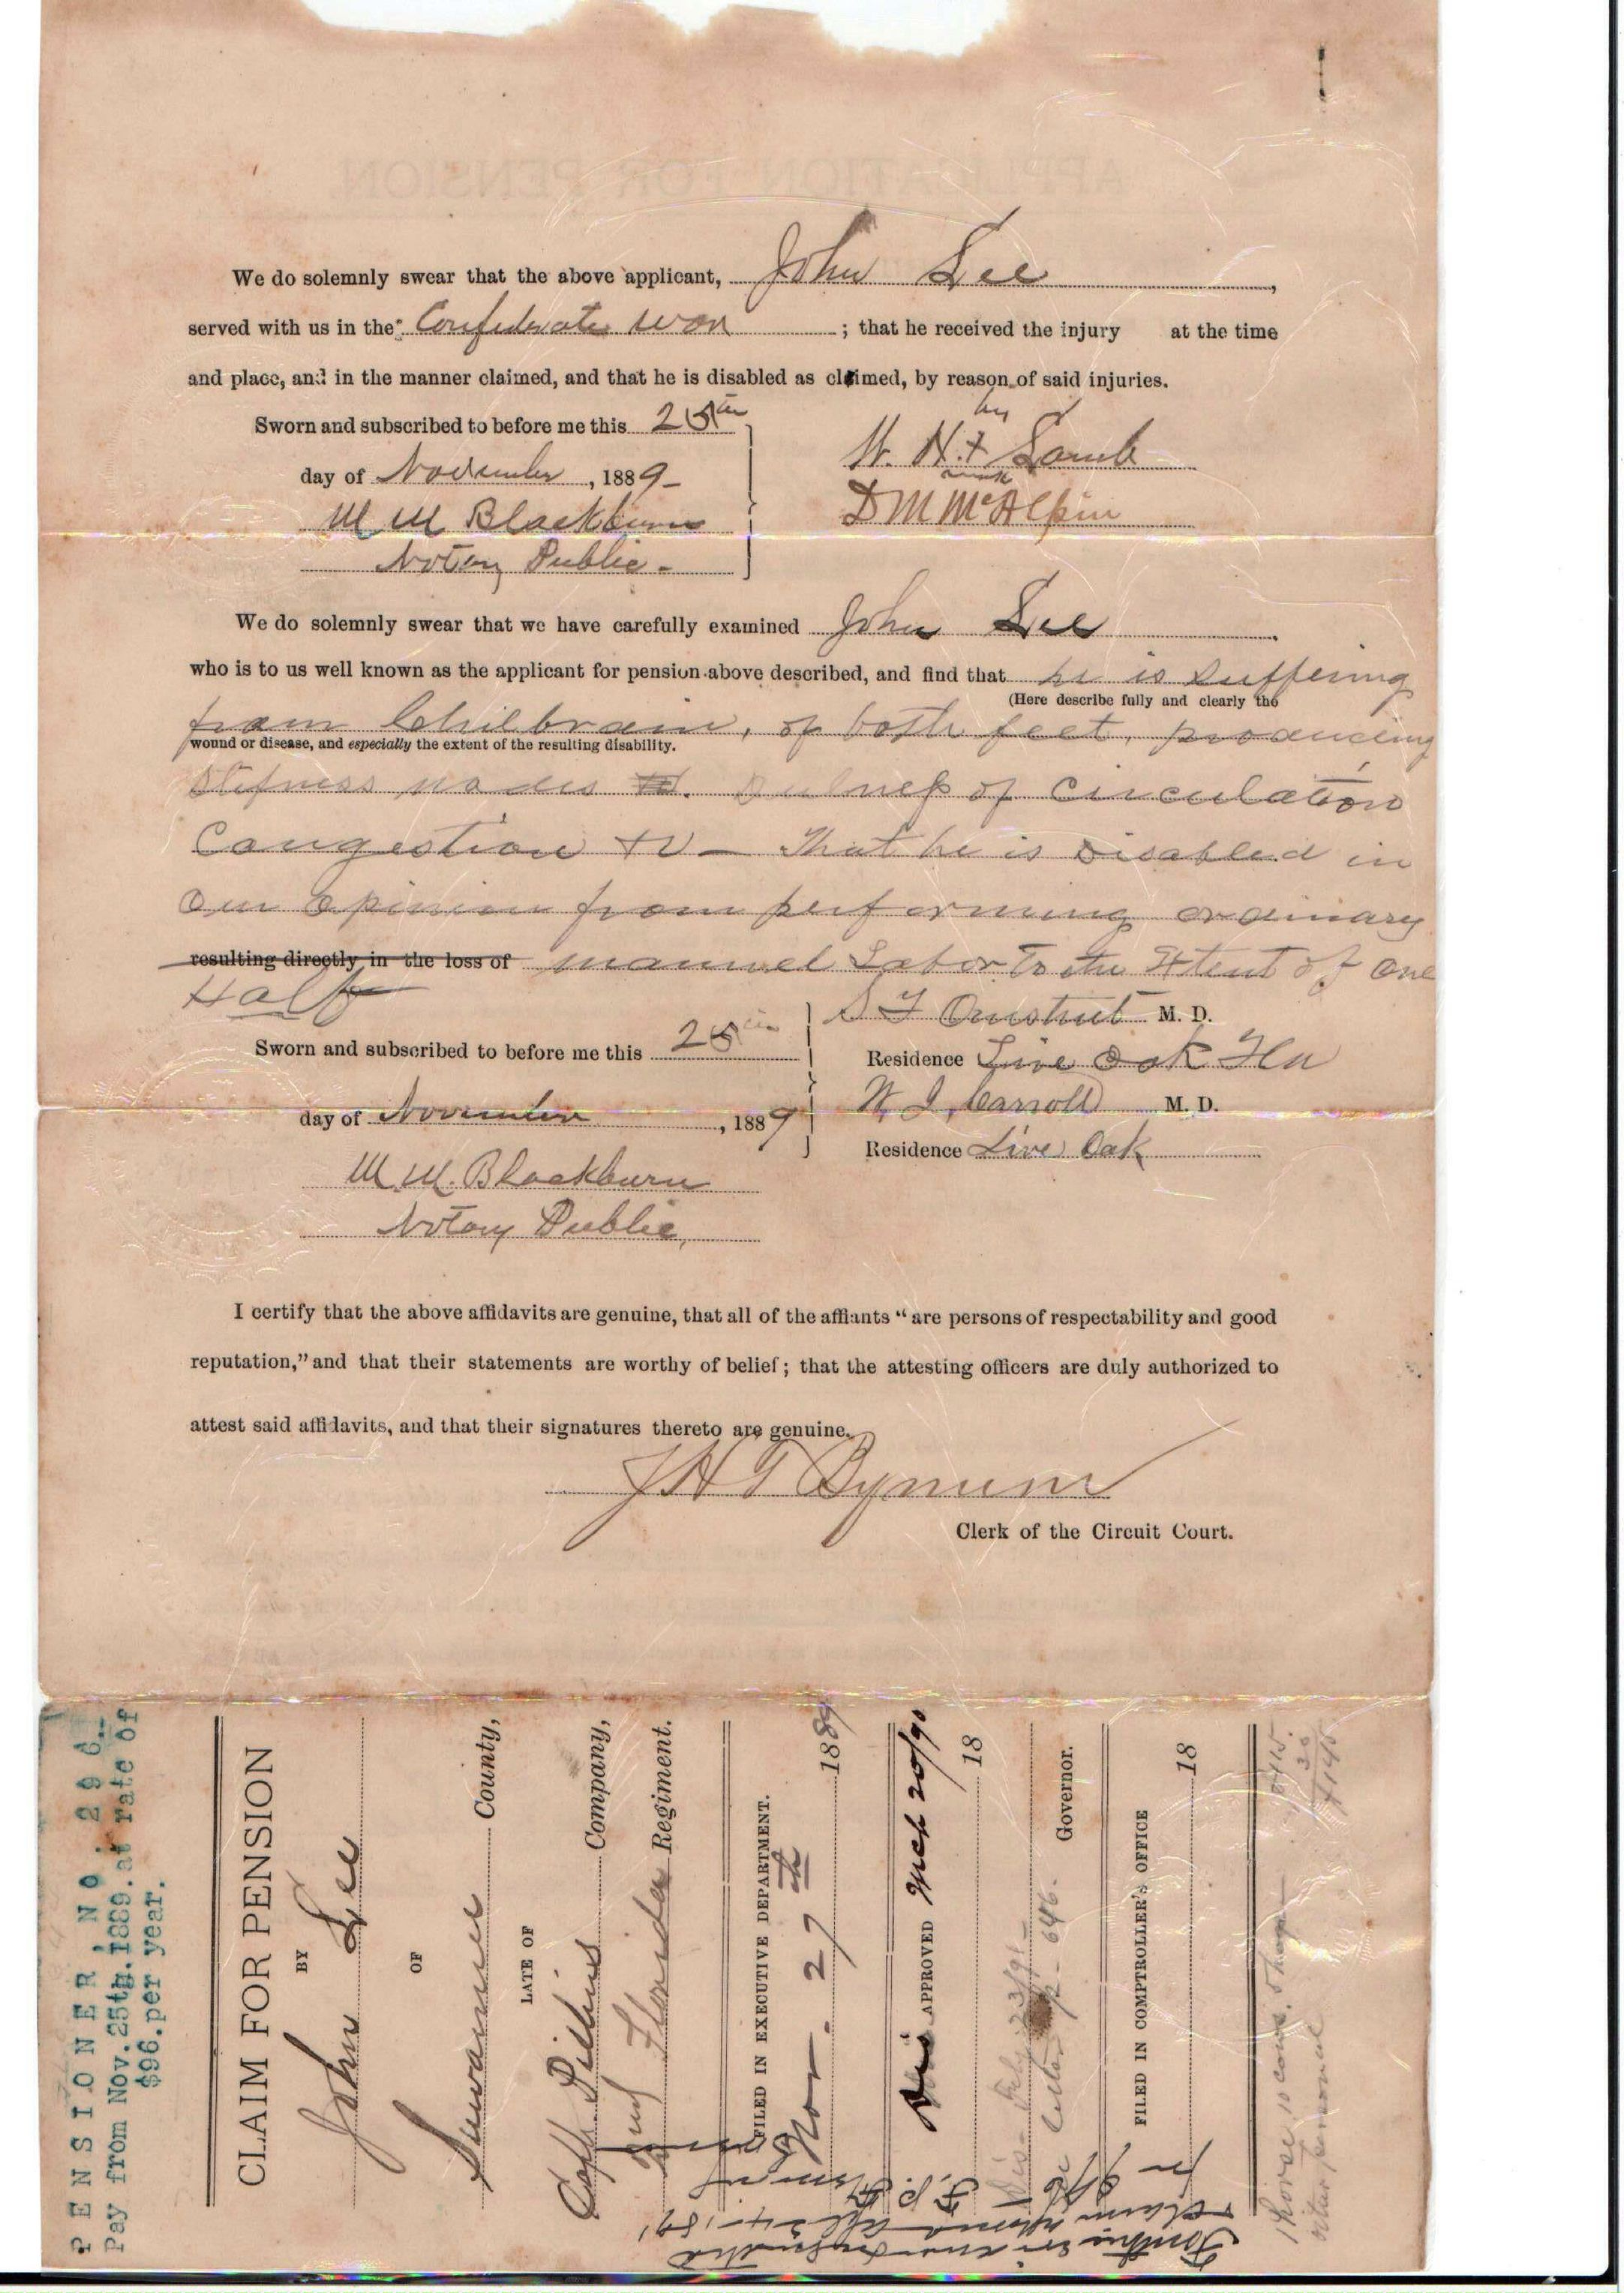 APPLICATION FOR PENSION
We do solemnly swear that the above applicant, John Lee,
served with us in the Confederate war; that he received the injury at the time
and place, and in the manner claimed, and that he is disabled as claimed, by reason of said injuries.
Sworn and subscribed to before me this 25th
day of November, 1889-
M M Blackburn
Notary Public-
by
W. H. + Lamb
mark
D M McAlpin
We do solemnly swear that we have carefully examined John Lee
who is to us well known as the applicant for pension above described, and find that he is Suffering
(Here describe fully and clearly the
from Chilbrain, of both feet, producing
wound or disease, and especially the extent of the resulting disability.
Stifness nodes Dulness of Circulation
Congestion - That he is Disabled in
our opinion from performing ordinary
resulting directly in the loss of manuel Labor to the Extent of one
Half
Sworn and subscribed to before me this 25th
day of November, 1889
M. M. Blackburn
Notary Public,
M. D.
Residence Live Oak Fla
W. J. Carroll M. D.
Residence Live Oak
I certify that the above affidavits are genuine, that all of the affiants "are persons of respectability and good
reputation," and that their statements are worthy of belief; that the attesting officers are duly authorized to
attest said affidavits, and that their signatures thereto are genuine.
J H T Bynum
Clerk of the Circuit Court.
PENSIONER NO. 296.
Pay from Nov. 25th. 1889. at rate of
$96. per year.
CLAIM FOR PENSION
BY
John Lee
OF
Suwannee County,
LATE OF
Capt. Company,
Florida Regiment.
FILED IN EXECUTIVE DEPARTMENT.
Nov. 27th 1889
Dis APPROVED Mch 20/90
18
Dis- 23/91-
646-
Governor.
FILED IN COMPTROLLER'S OFFICE
18
1 horse 10 cows 5 hogs